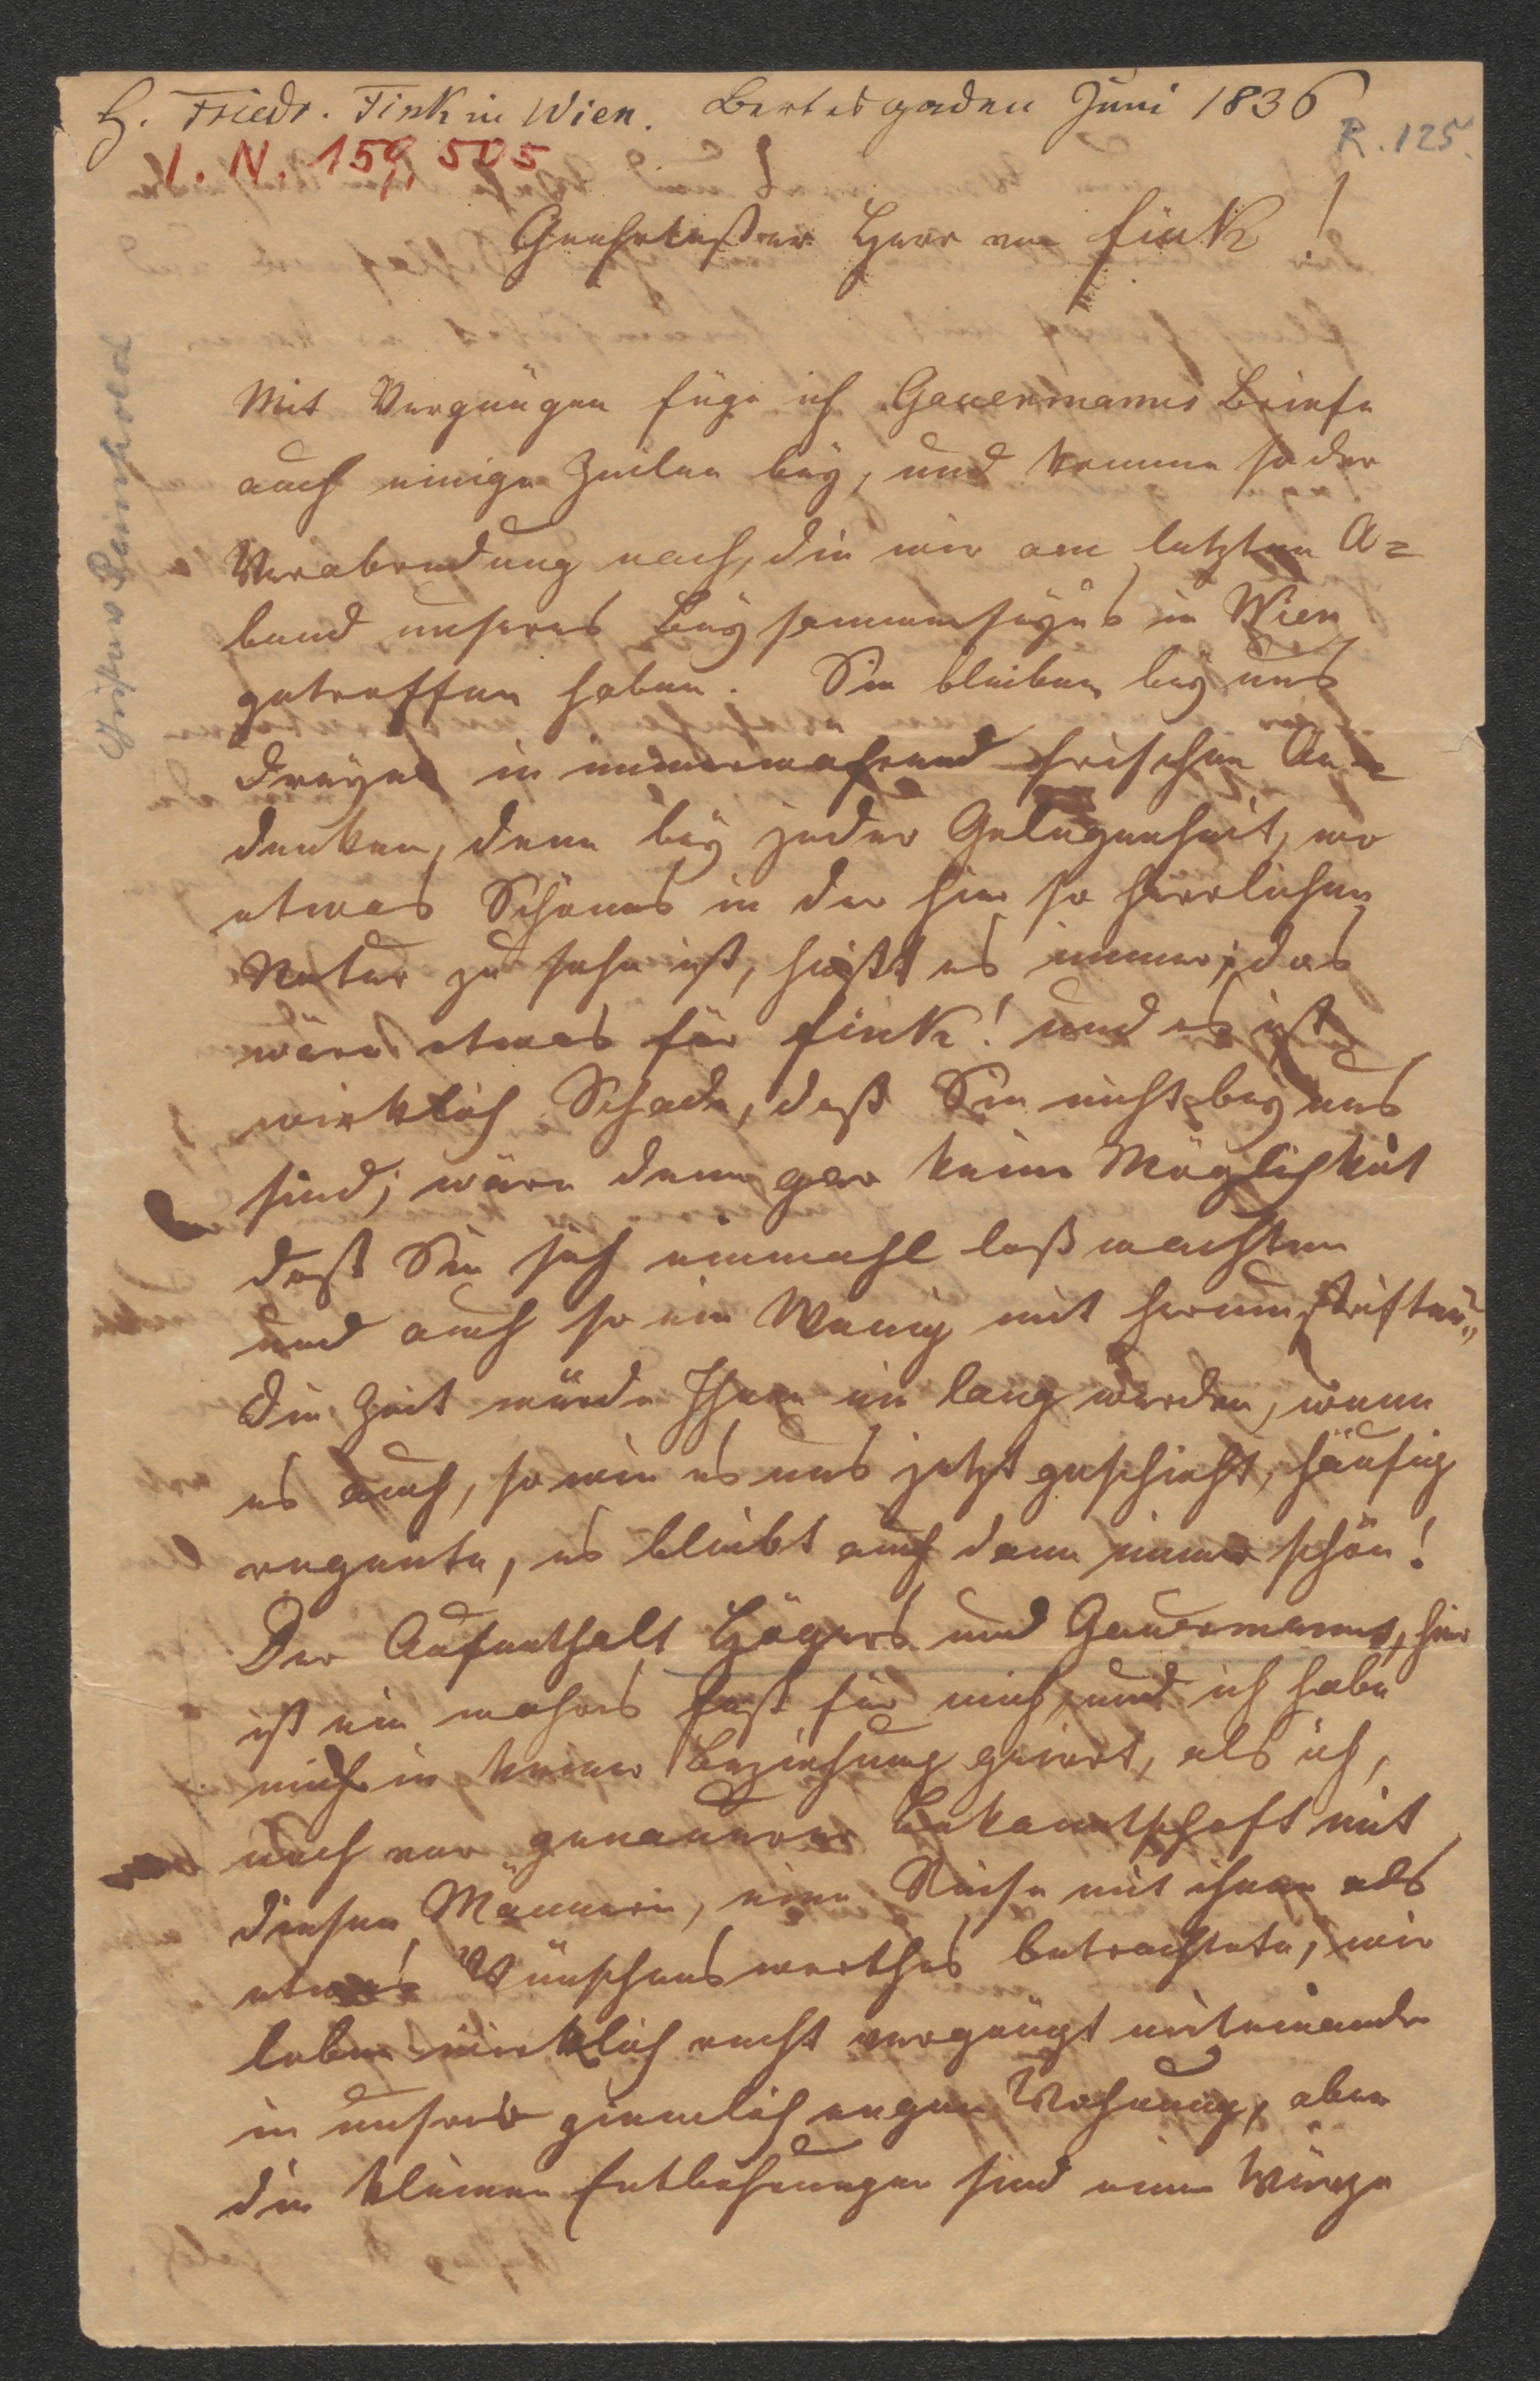 H. Friedr. Fink in Wien. Bertesgaden Juni 1836
R. 125.
I. N. 159,505
Geehrtester Herr von Fink!
Mit Vergnügen füge ich Gauermanns Briefe
auch einige Zeilen bey, und komme so der
Verabredung nach, die wir am letzten A=
bend unseres Beysammenseyns in Wien
getroffen haben. Sie bleiben bey uns
dreyen in immerwährend frischen An=
denken, denn bey jeder Gelegenheit, wo
etwas Schönes in der hier so herrlichen
Natur zu sehn ist, heißt es immer; das
wäre etwas für Fink! und es ist
wirklich Schade, daß Sie nicht bey uns
sind; wäre denn gar keine Möglichkeit
daß Sie sich einmahl loß machten
und auch so ein Wenig mit herum
Die Zeit würde Ihnen nie lang werden, wenn
es auch, so wie es uns jetzt geschieht, häufig
regente, es bleibt auch dann immer schön!
Der Aufenthalt Högers und Gauermanns, hier
ist ein wahres Fest für mich, und ich habe
mich in keiner Beziehung geirrt, als ich,
noch vor genauerer Bekanntschaft mit
diesen Männern, eine Reise mit ihnen als
etwas Wünschenswerthes betrachtete, wir
leben wirklich recht vergnügt miteinander
in unserer ziemlich engen Wohnung, aber
die kleinen Entbehrungen sind eine Würze